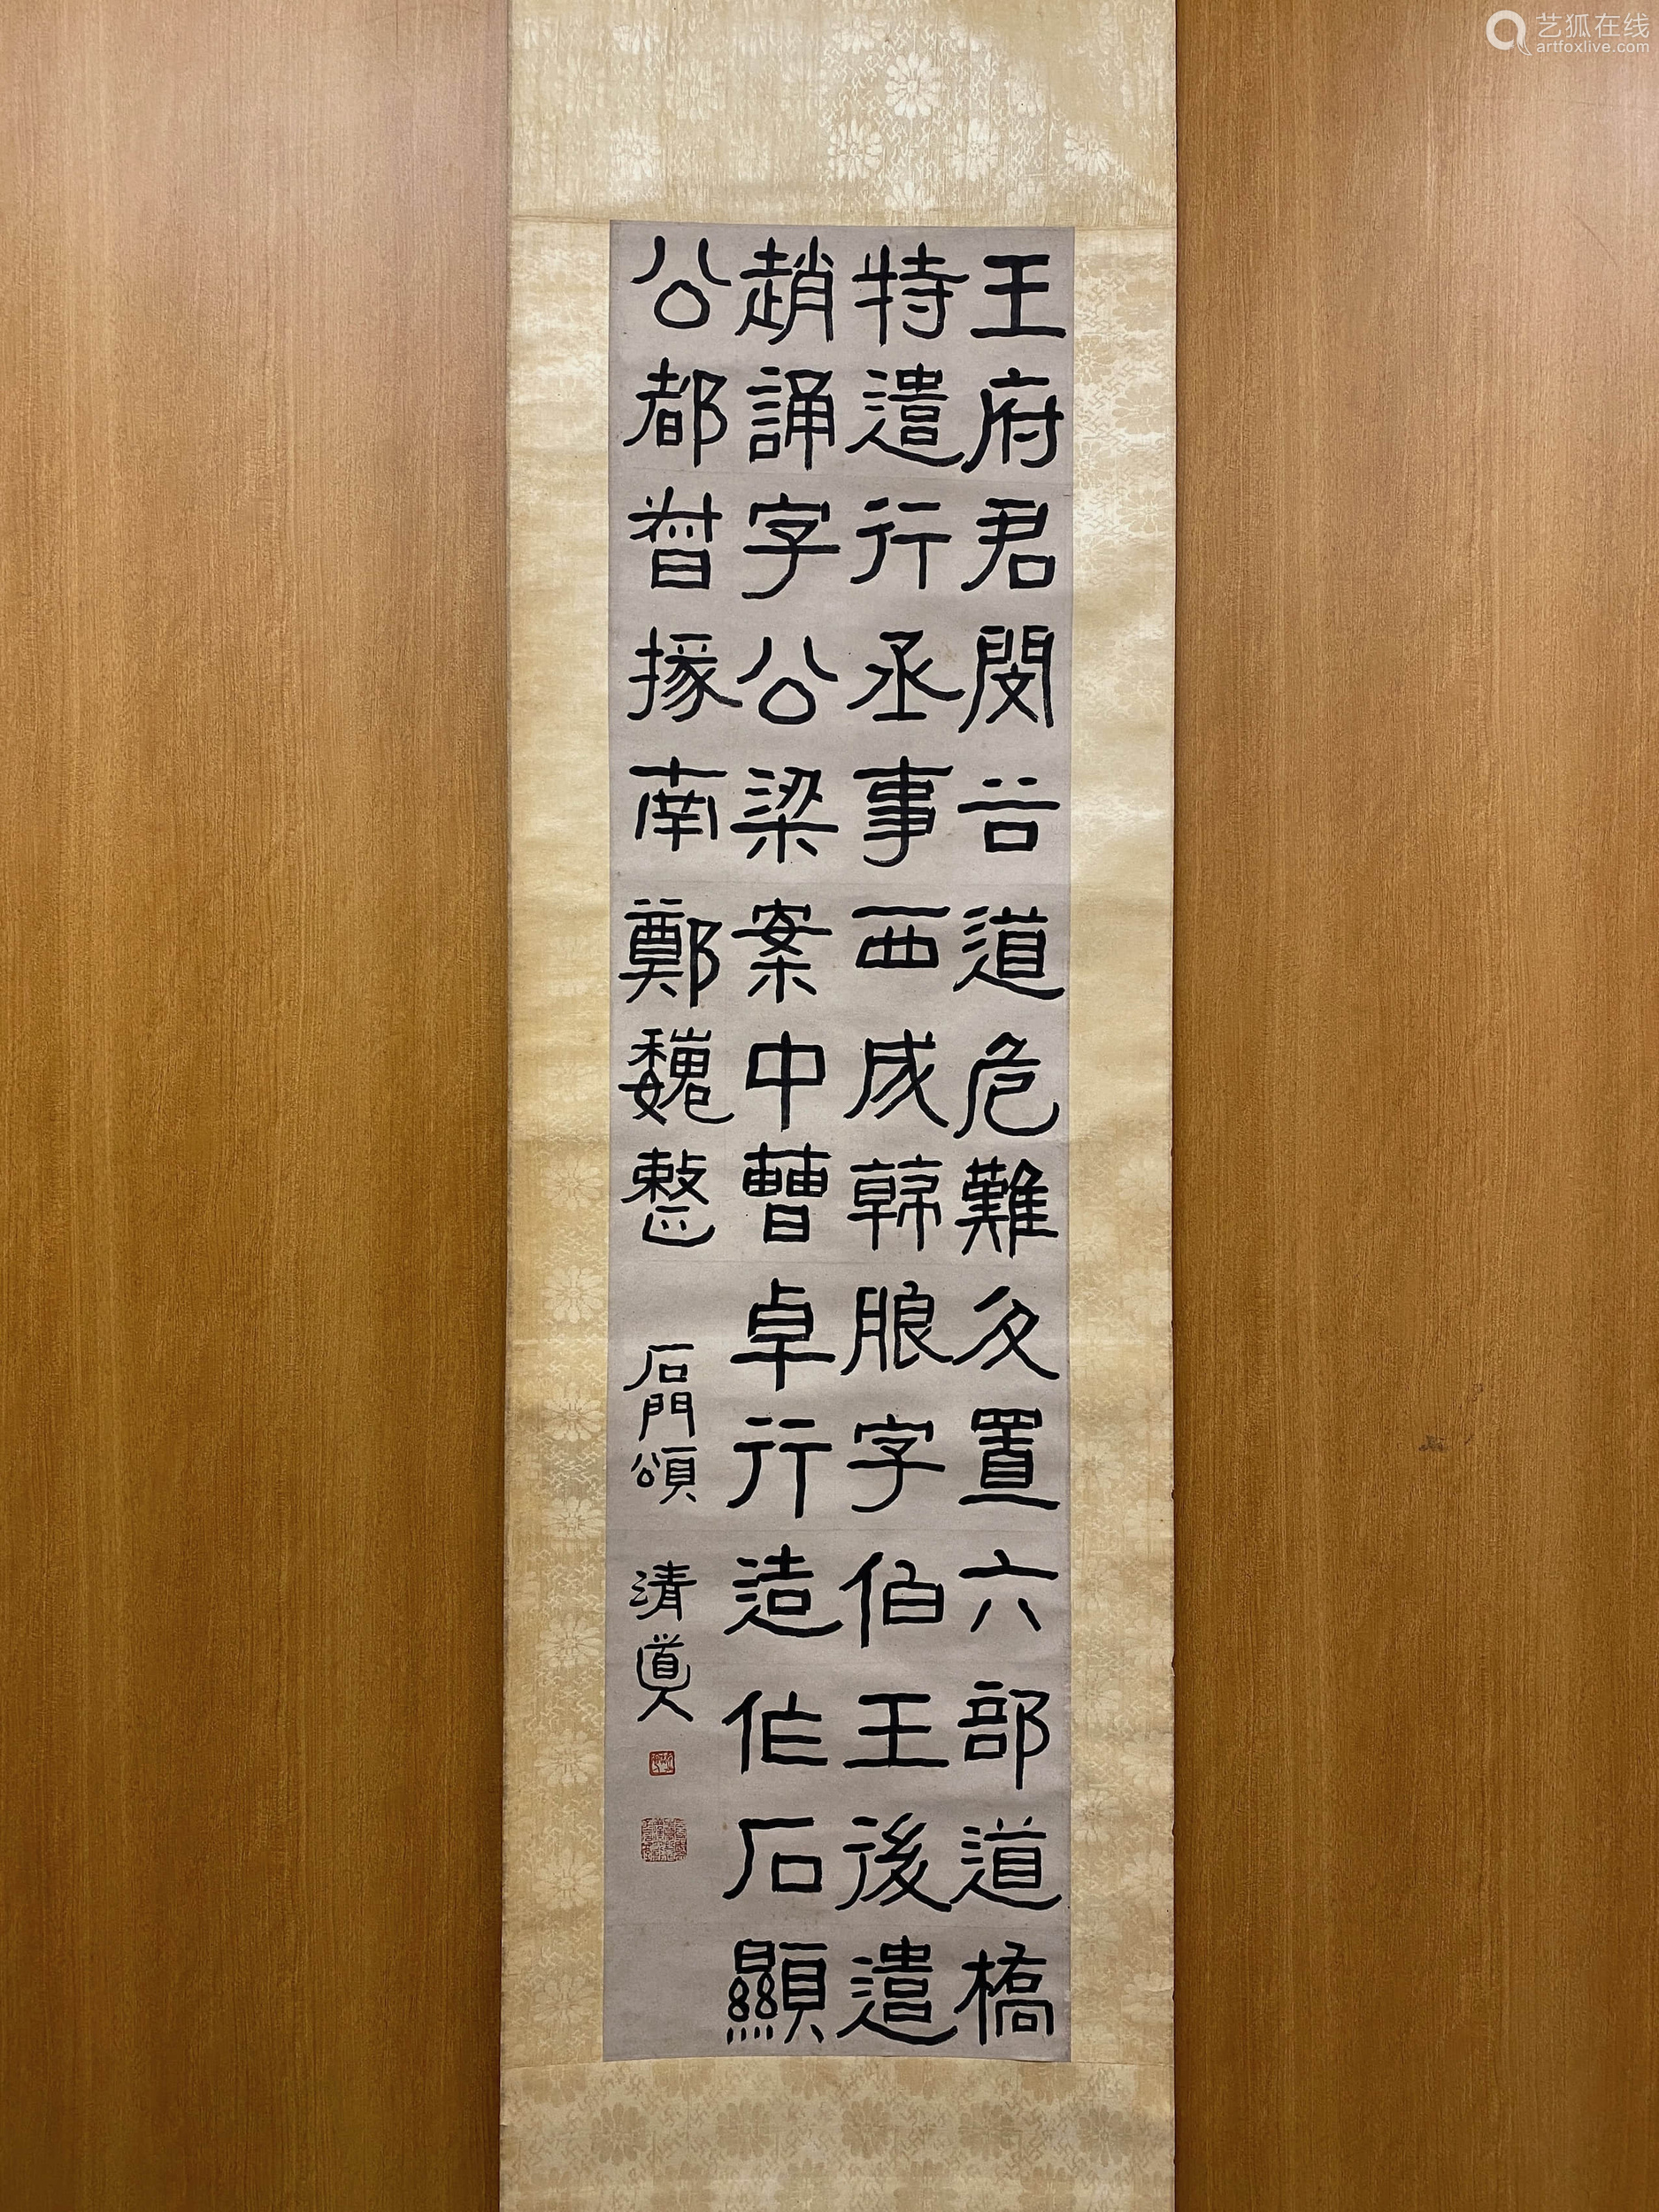 王府君閔谷道危難分置六部道橋
特遣行丞事西成韓朖字伯王後遣
趙誦字公梁案中曹卓行造作石顯
公都督掾南鄭魏整
石門頌
清道人
艺狐在线
artfoxlive.com